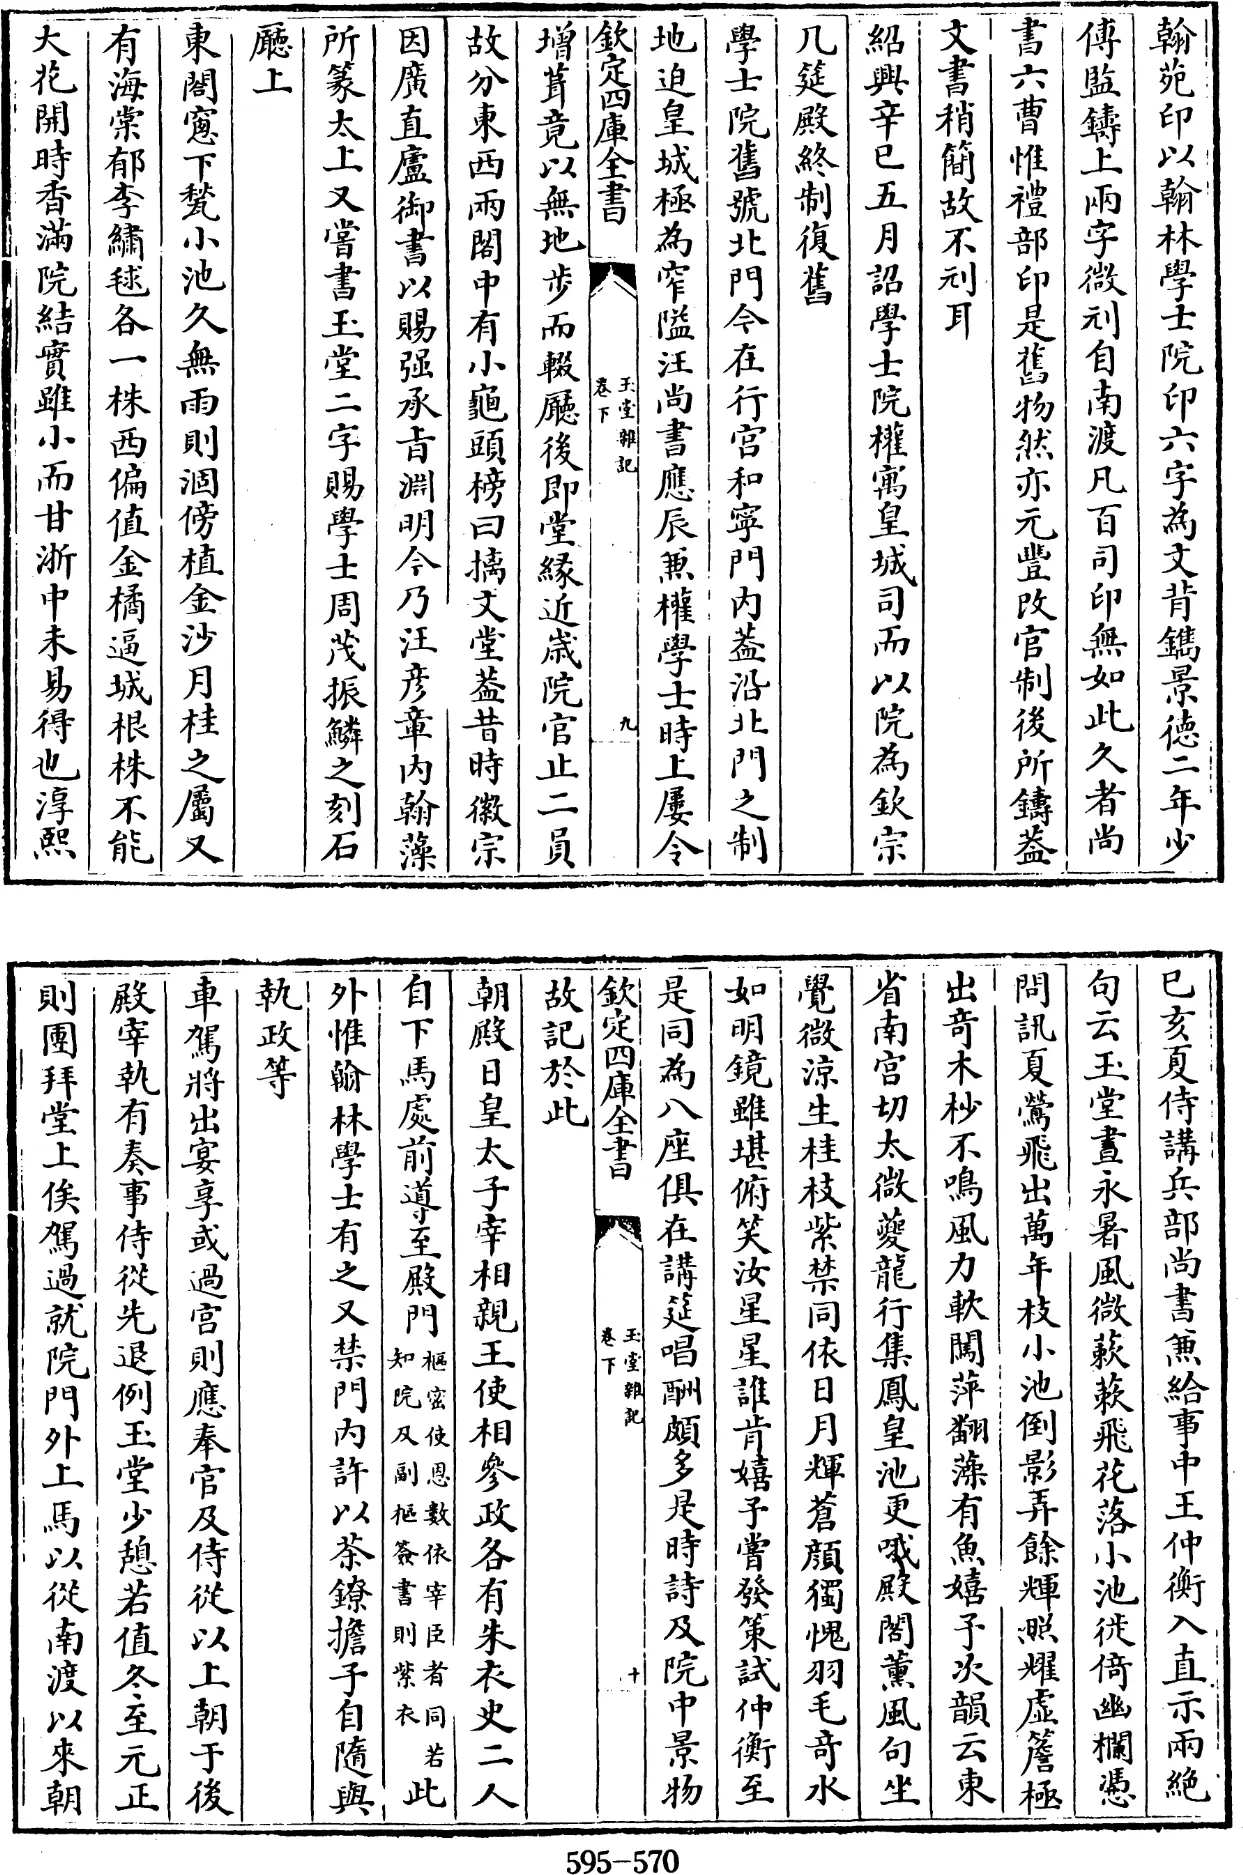 翰苑印以翰林學士院印六字為文背鐫景徳二年少
傅監鑄上兩字微刓自南渡凡百司印無如此久者尚
書六曹惟禮部印是舊物然亦元豐改官制後所鑄葢
文書稍簡故不刓耳
紹興辛巳五月詔學士院權寓皇城司而以院為欽宗
几筵殿終制復舊
學士院舊號北門今在行宫和寧門内葢沿北門之制
地迫皇城極為窄隘汪尚書應辰兼權學士時上屢令
欽定四庫全書 玉堂雜記 卷下 九
增葺竟以無地步而輟廳後即堂緣近嵗院官止二員
故分東西兩閣中有小龜頭榜曰摛文堂葢昔時徽宗
因廣直廬御書以賜强承㫖淵明今乃汪彦章内翰藻
所篆太上又嘗書玉堂二字賜學士周茂振麟之刻石
廳上
東閣窻下甃小池久無雨則涸傍植金沙月桂之屬又
有海棠郁李繡毬各一株西偏值金橘逼城根株不能
大花開時香滿院結實雖小而甘浙中未易得也淳熙
已亥夏侍講兵部尚書兼給事中王仲衡入直示兩絶
句云玉堂晝永暑風微蔌蔌飛花落小池徙倚幽欄憑
問訊夏鶯飛出萬年枝小池倒影弄餘輝照耀虚簷極
出竒木杪不鳴風力軟闖萍翻藻有魚嬉予次韻云東
省南宫切太微䕫龍行集鳳皇池更哦殿閣薫風句坐
覺微涼生桂枝紫禁同依日月輝蒼顔獨愧羽毛竒水
如明鏡雖堪俯笑汝星星誰肯嬉予嘗發策試仲衡至
是同為八座俱在講筵唱酬頗多是時詩及院中景物
欽定四庫全書 玉堂雜記 卷下 十
故記於此
朝殿日皇太子宰相親王使相參政各有朱衣吏二人
自下馬處前導至殿門樞密使恩數依宰臣者同若知院及副樞簽書則紫衣此
外惟翰林學士有之又禁門内許以茶鐐擔子自隨與
執政等
車駕將出宴享或過宫則應奉官及侍從以上朝于後
殿宰執有奏事侍從先退例玉堂少憩若值冬至元正
則團拜堂上俟駕過就院門外上馬以從南渡以來朝
595-570